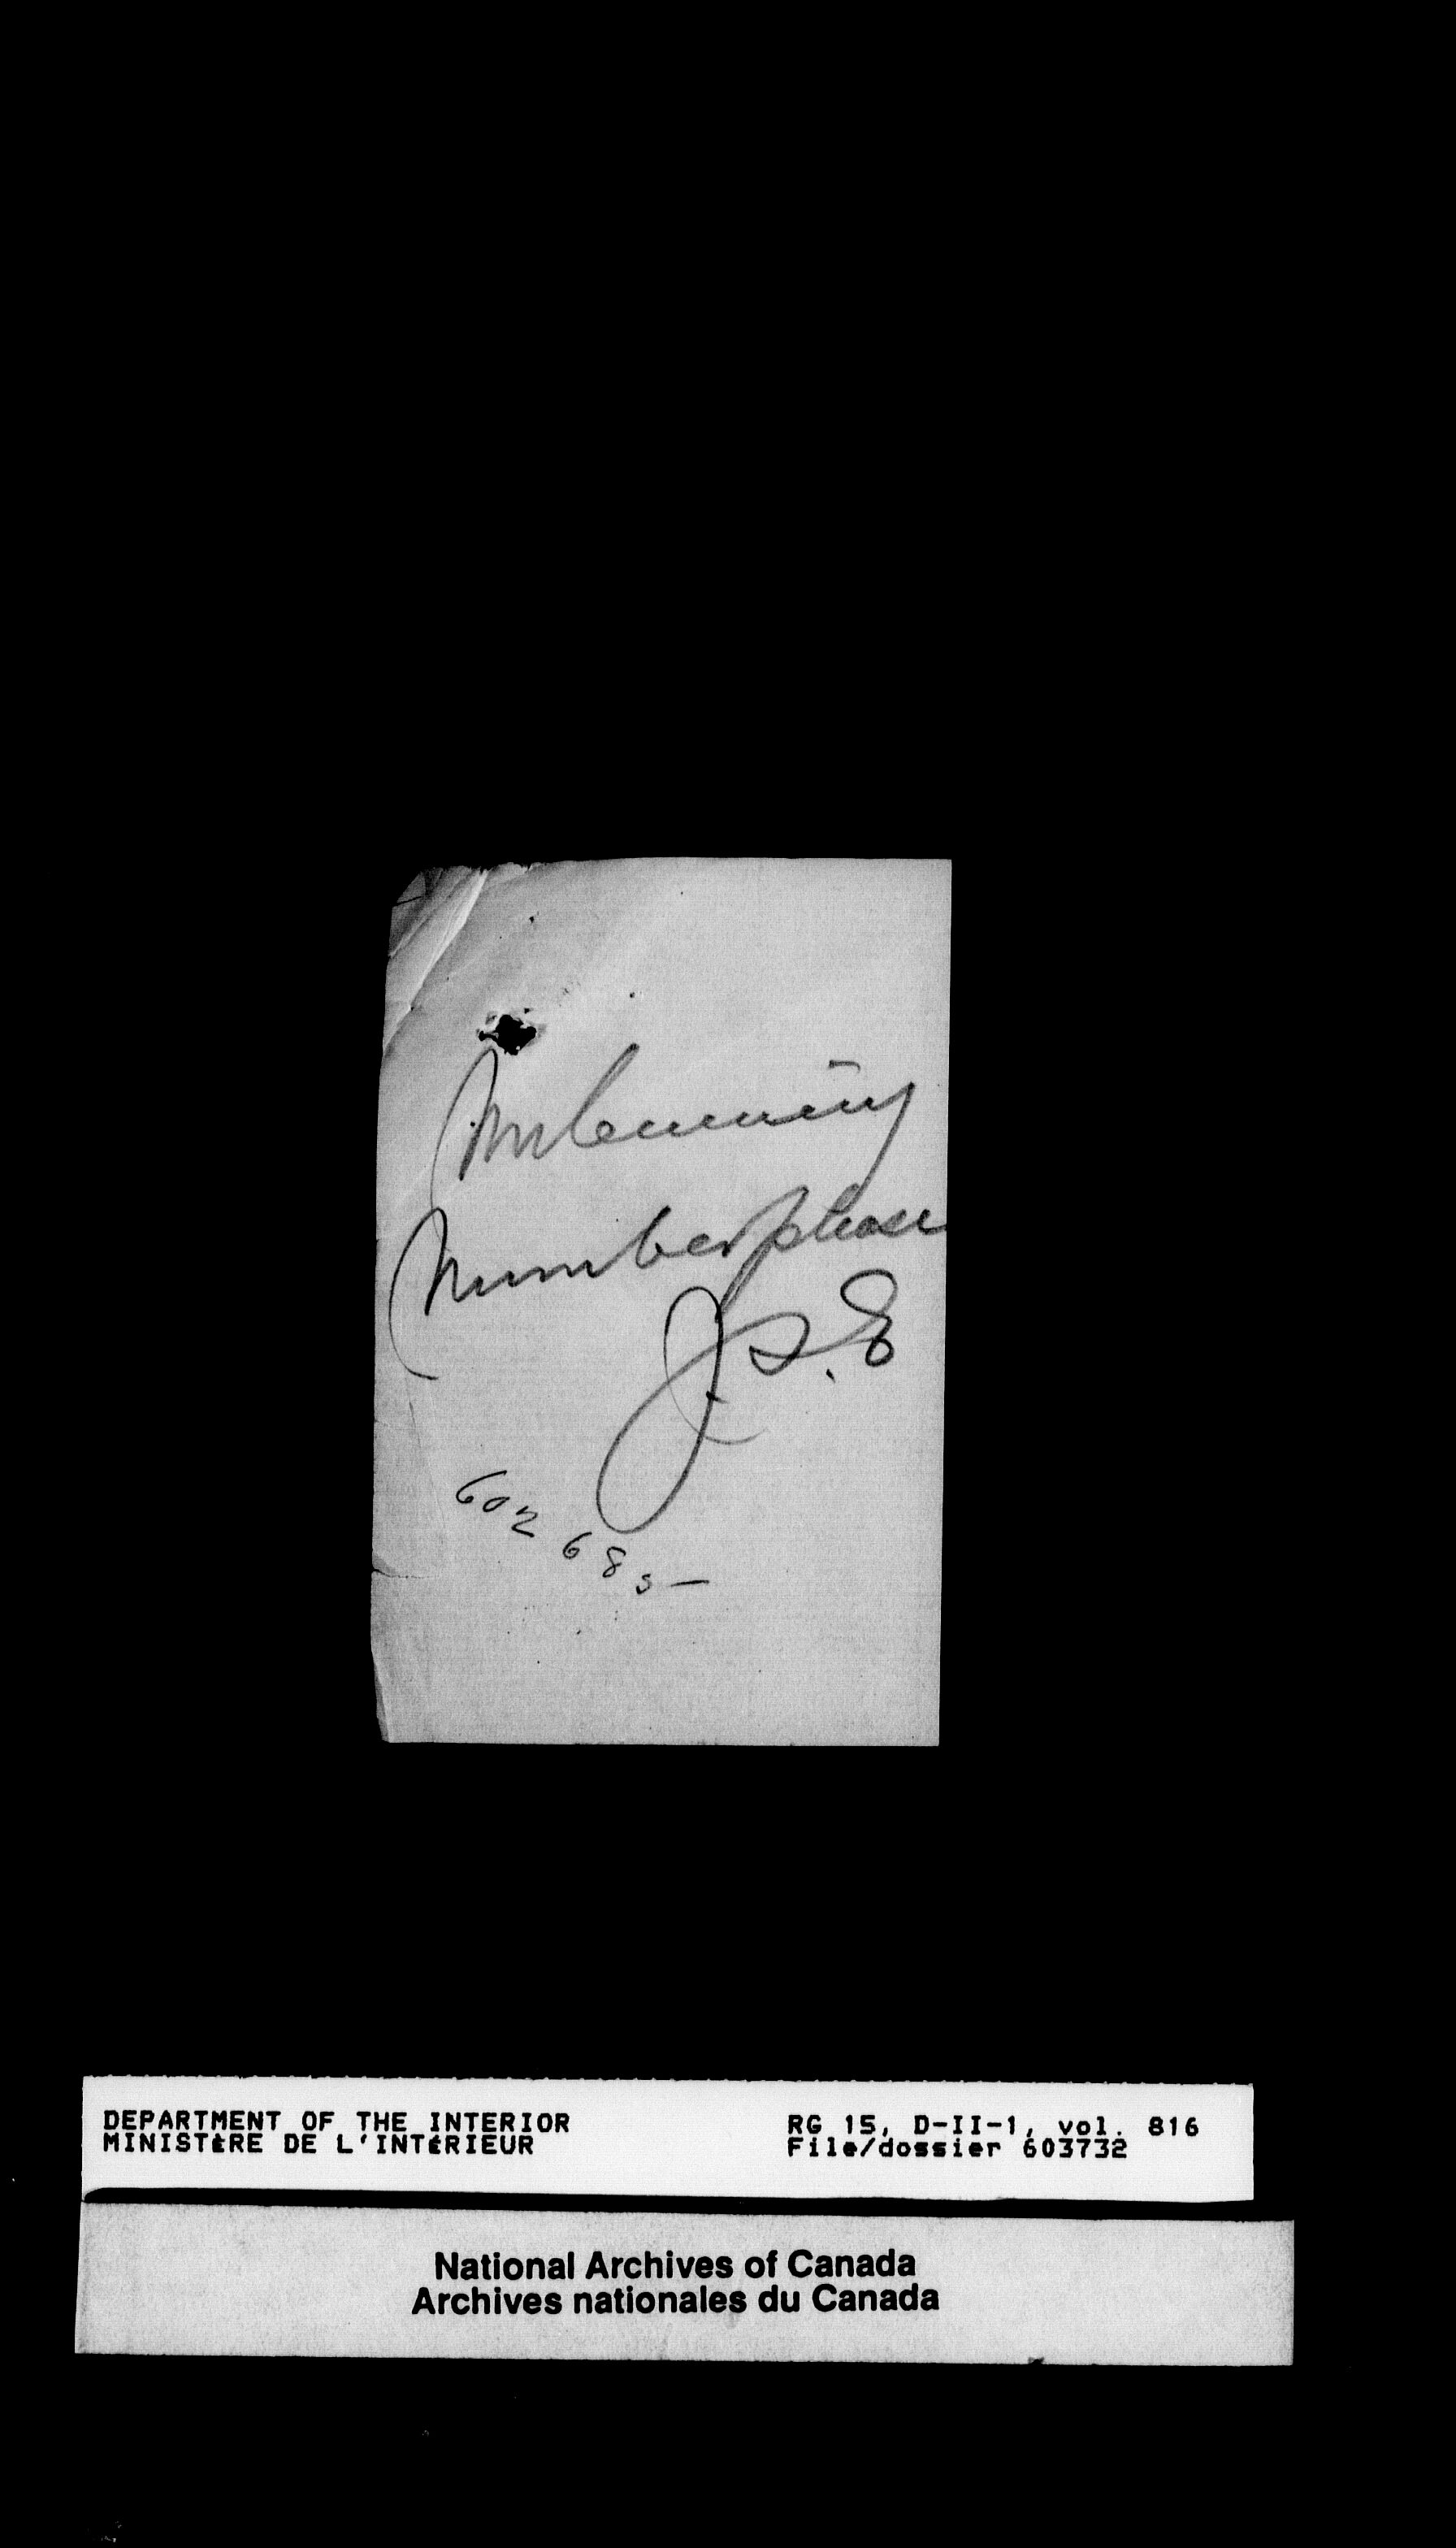 Mr
Number please
J.S.E
602685
DEPARTMENT OF THE INTERIOR
MINISTÈRE DE L'INTÉRIEUR
RG 15, D-II-1, vol. 816
File/dossier 603732
National Archives of Canada
Archives nationales du Canada